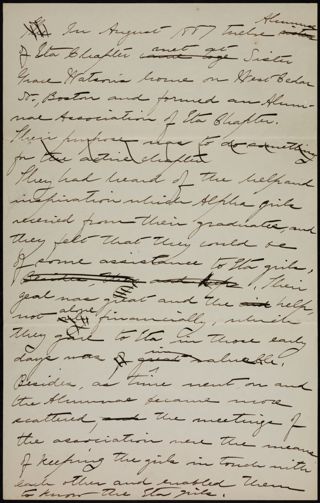 In August 1887 twelve Alumnae
of Eta Chapter met at Sister
Grace Watson's home on West Cedar
St., Boston and formed an Alum-
nae Association of Eta Chapter.
Their purpose was to do something
for the active chapter.
They had heard of the help and
inspiration which Alpha girls
received from their graduates, and
they felt that they could be
of some assistance to Eta girls.
Besides, their
zeal was great and the help,
not alone financially, which
they gave to Eta, in those early
days was invaluable.
Besides, as time went on and
the Alumnae became more
scattered, the meetings of
the association were the means
of keeping the girls in touch with
each other and enabled them
to know the Eta girls.